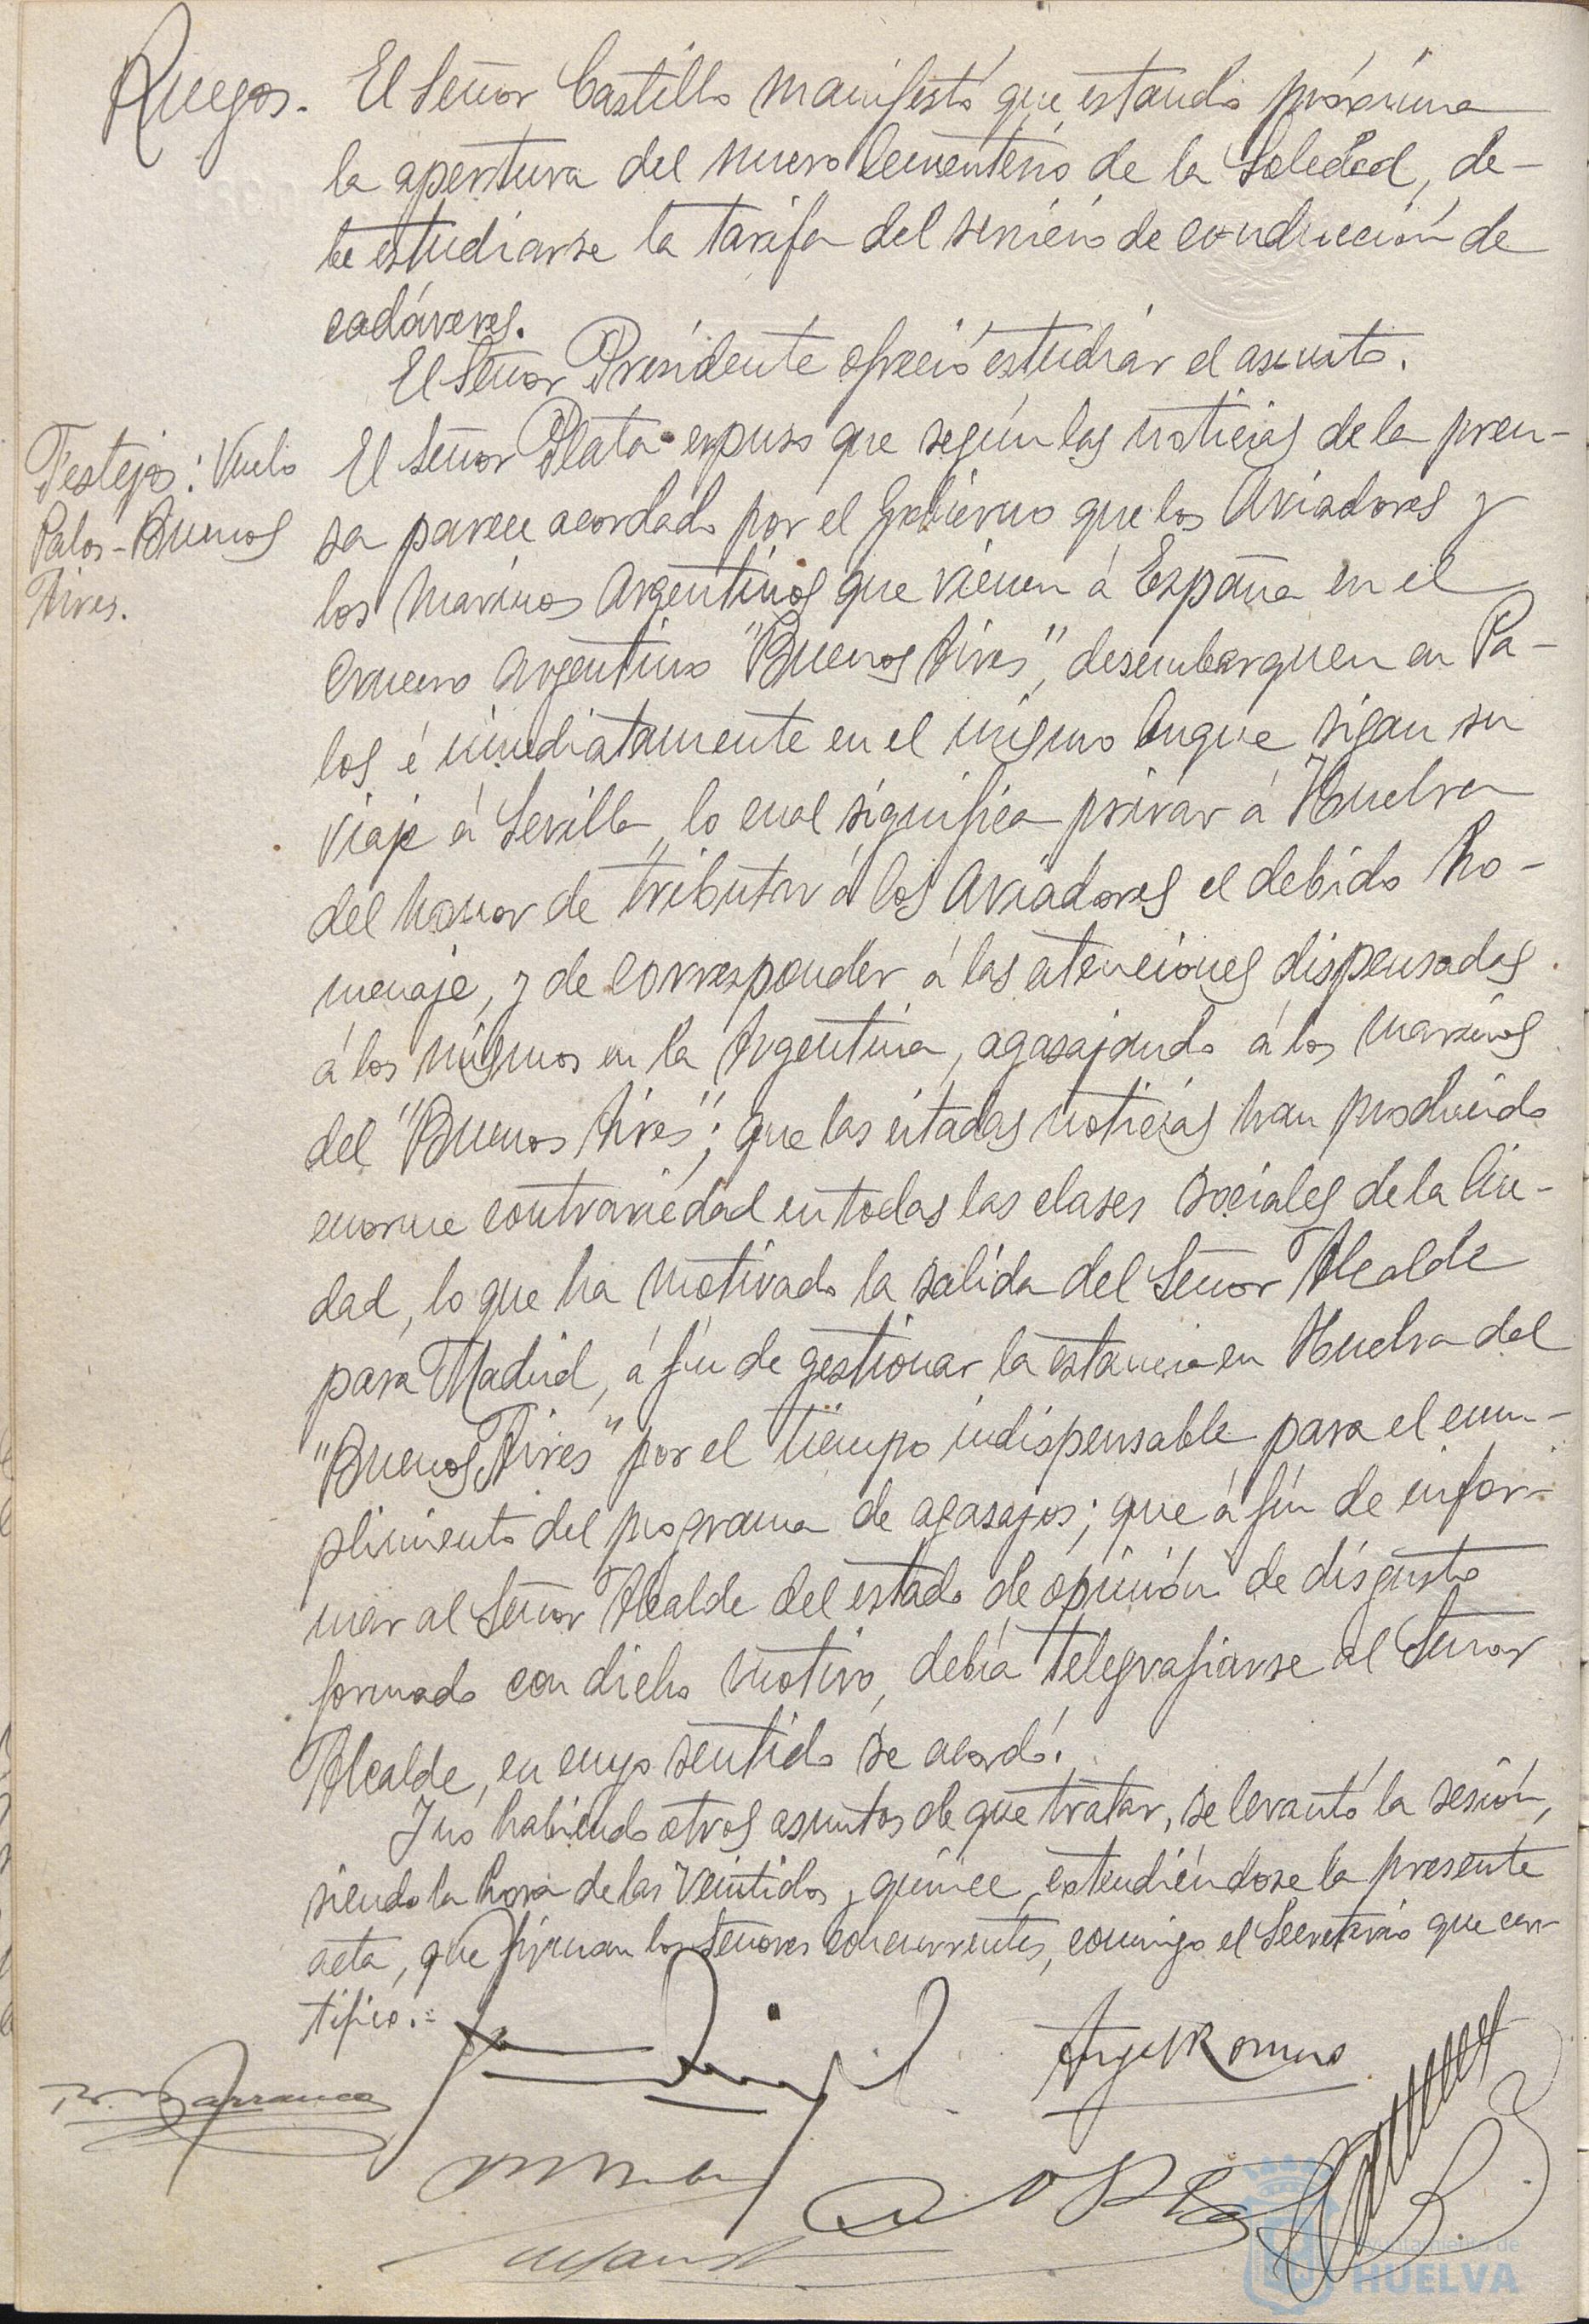 Ruegos.
El Señor Castillo manifestó que, estando próxima
la apertura del nuevo Cementerio de la Soledad, de-
be estudiarse la tarifa del servicio de conducción de
cadáveres.
El Señor Presidente ofreció estudiar el asunto.
Festejos: Vuelo
Palos-Buenos
Aires.
El Señor Plata expuso que según las noticias de la pren-
sa parece acordado por el Gobierno que los Aviadores y
los marinos Argentinos que vienen á España en el
crucero Argentino "Buenos Aires", desembarquen en Pa-
los é inmediatamente en el mismo buque sigan su
viaje á Sevilla, lo cual significa privar á Huelva
del honor de tributar á los Aviadores el debido ho-
menaje, y de corresponder á las atenciones dispensadas
á los mismos en la Argentina, agasajando á los marinos
del "Buenos Aires"; que las citadas noticias han producido
enorme contrariedad en todas las clases sociales de la Ciu-
dad, lo que ha motivado la salida del Señor Alcalde
para Madrid, á fin de gestionar la estancia en Huelva del
"Buenos Aires" por el tiempo indispensable para el cum-
plimiento del programa de agasajos; que á fin de infor-
mar al Señor Alcalde del estado de opinión de disgusto
formado con dicho motivo, debía telegrafiarse al Señor
Alcalde, en cuyo sentido se acordó.
Y no habiendo otros asuntos de que tratar, se levantó la sesión,
siendo la hora de las veintidos y quince, extendiéndose la presente
acta, que firman los Señores concurrentes, conmigo el Secretario que cer-
tifico.=
Angel Romero
Barranco
Ayuntamiento de
HUELVA